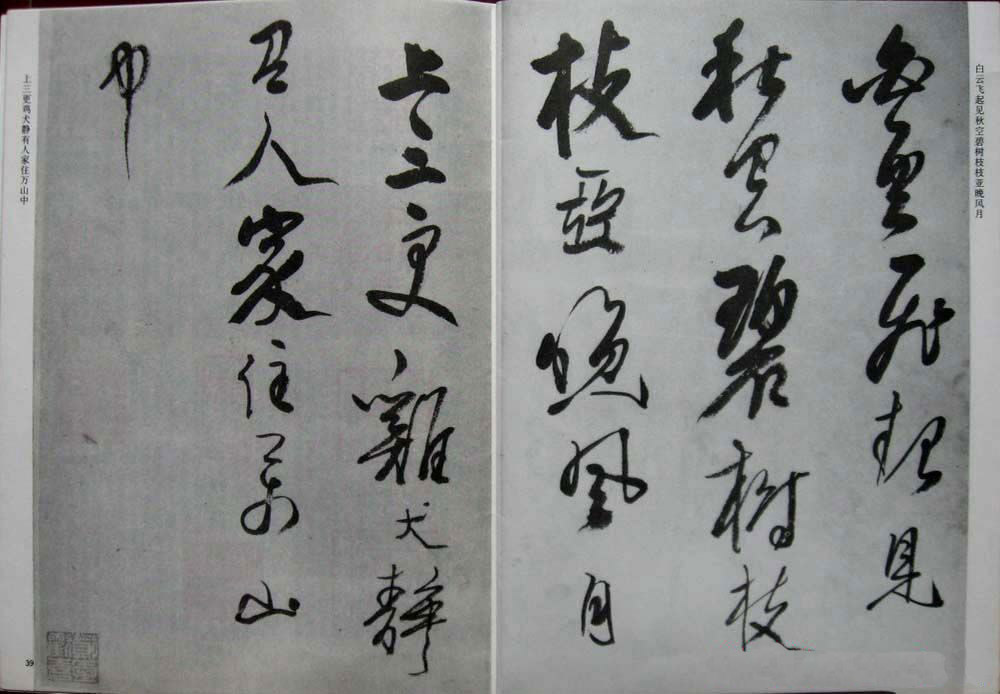 白云飞起见秋空碧树枝枝亚晚风月
白雲飛起見
秋空碧樹枝
枝亞晚風月
上三更雞犬靜
有人家住萬山
中
上三更鸡犬静有人家住万山中
39